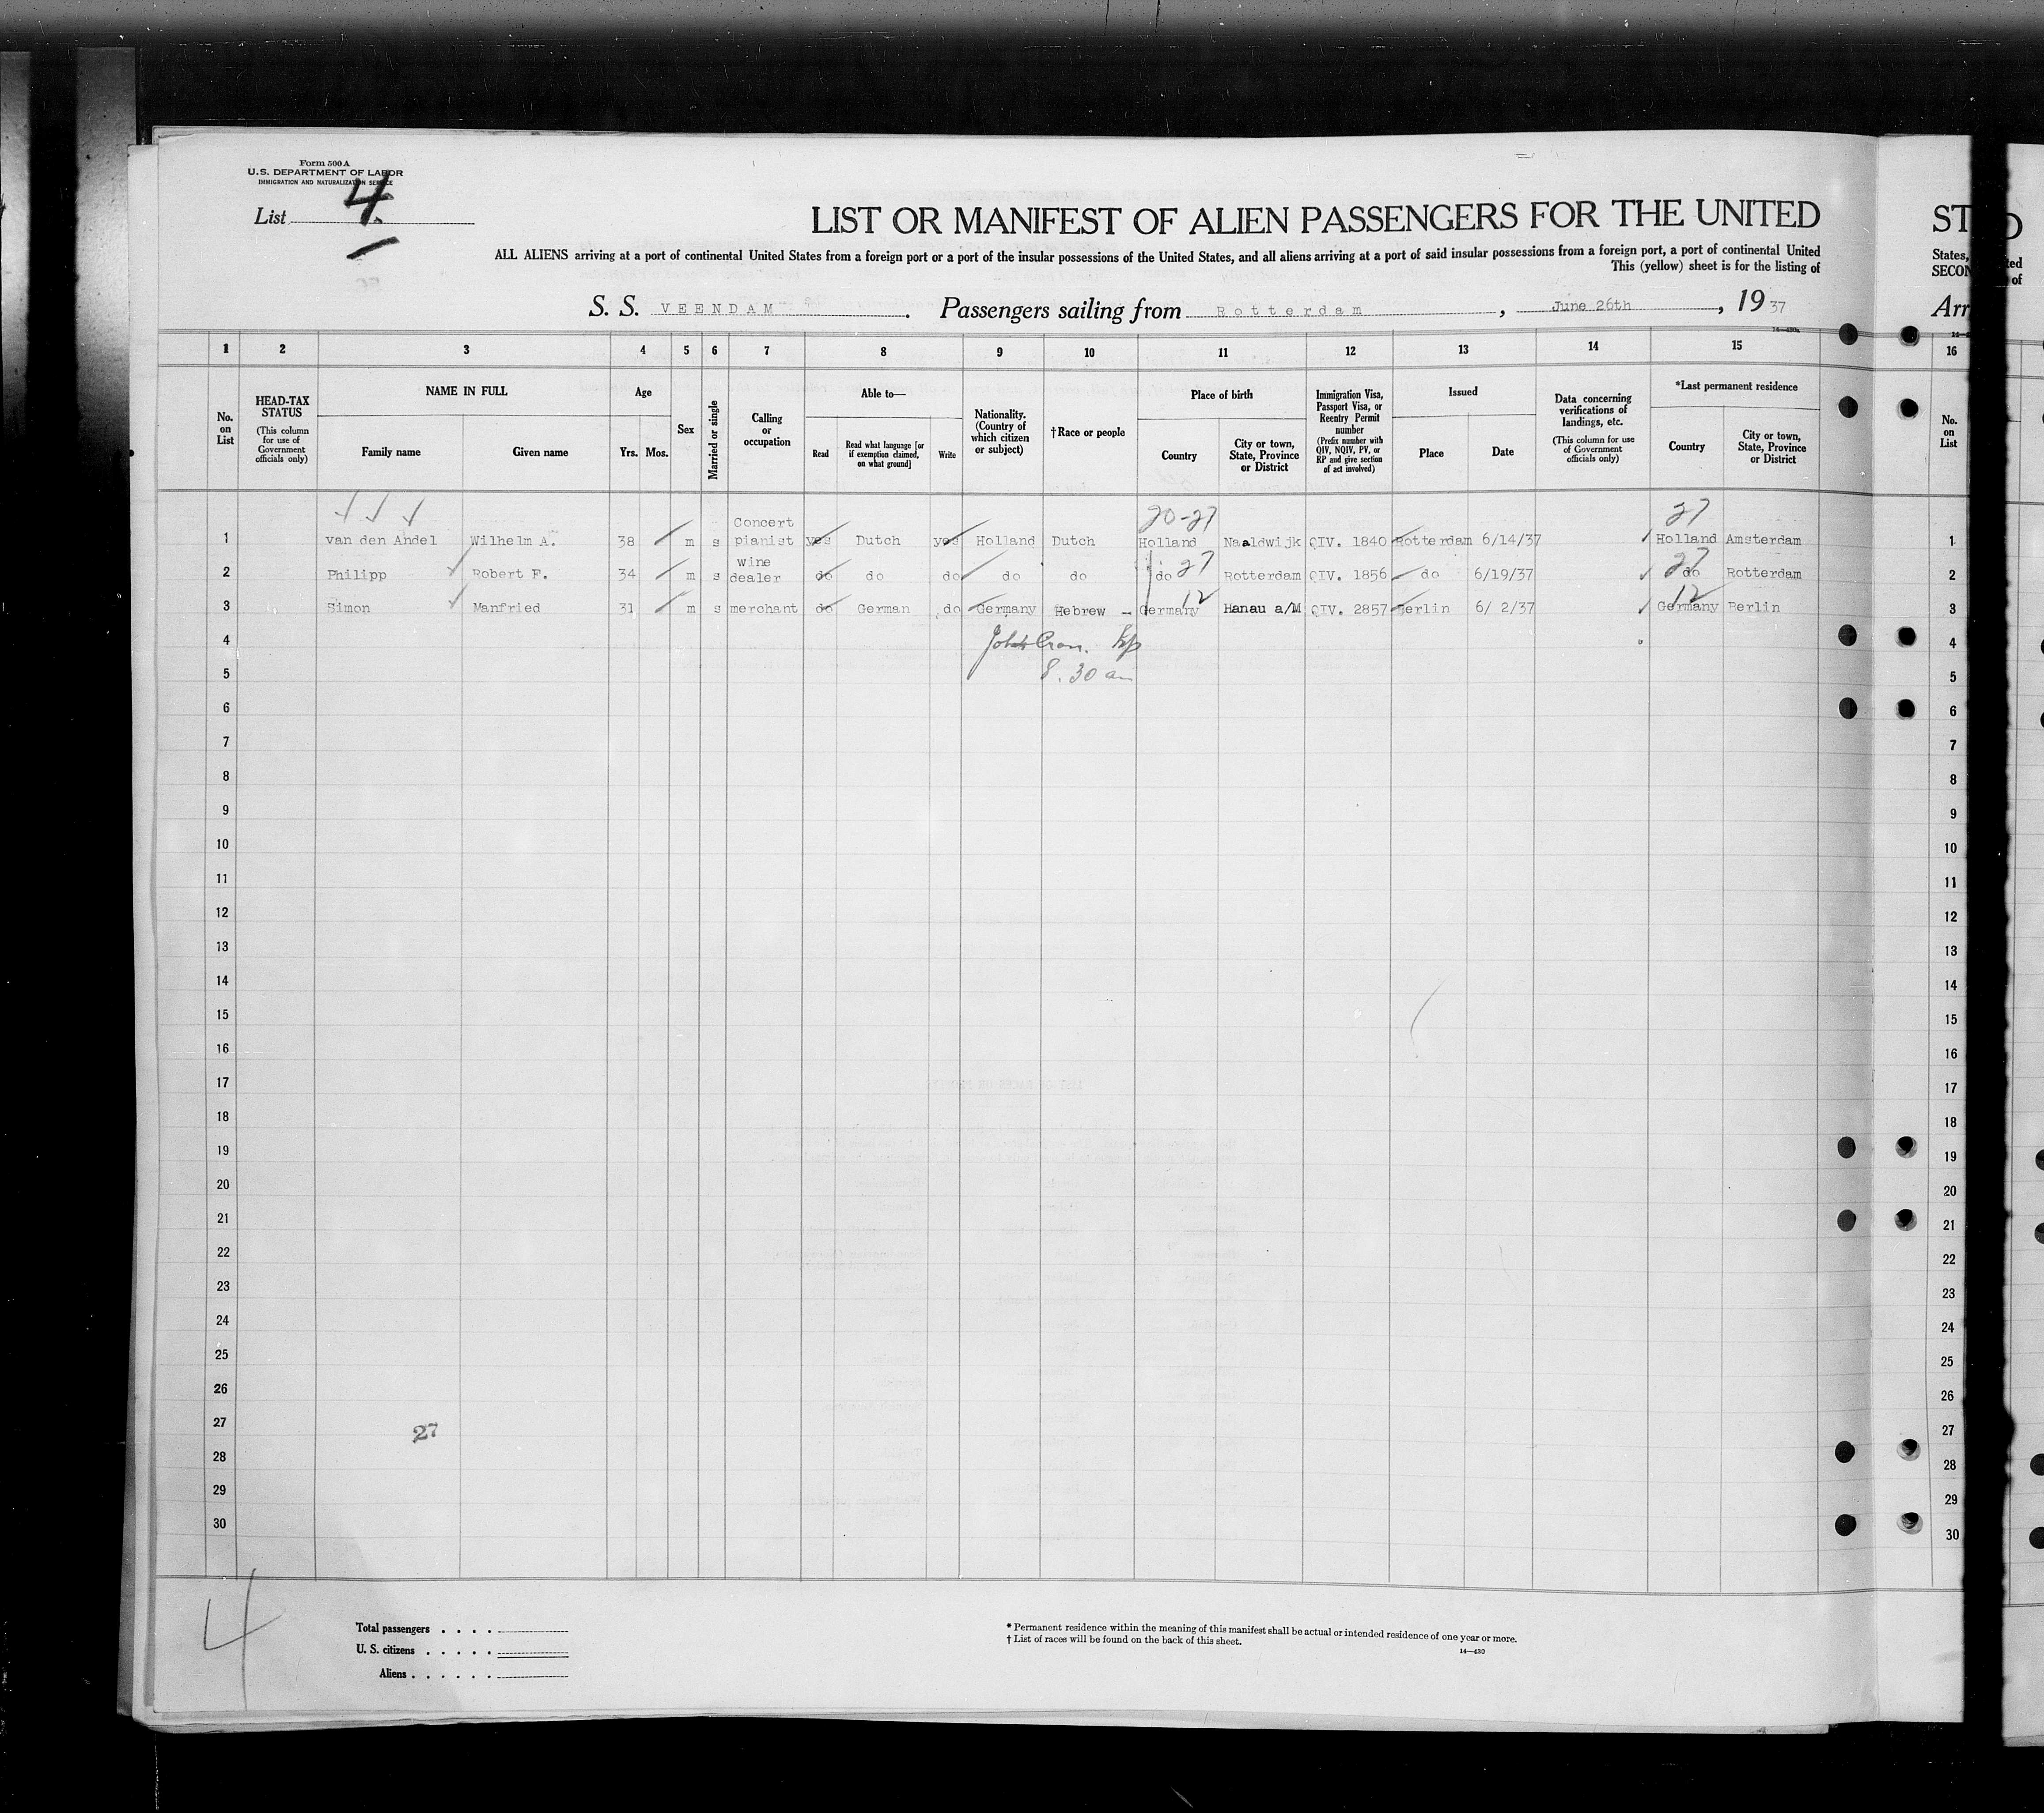 Form 500 A
U.S. DEPARTMENT OF LABOR
IMMIGRATION AND NATURALIZATION SERVICE
List 4
LIST OR MANIFEST OF ALIEN PASSENGERS FOR THE UNITED
ALL ALIENS arriving at a port of continental United States from a foreign port or a port of the insular possessions of the United States, and all aliens arriving at a port of said insular possessions from a foreign port, a port of continental United
This (yellow) sheet is for the listing of
S. S. VEENDAM. Passengers sailing from Rotterdam, June 26th, 1937
14—430a
1 2 3 4 5 6 7 8 9 10 11 12 13 14 15
No. on List
HEAD-TAX STATUS (This column for use of Government officials only)
NAME IN FULL
Family name Given name
Age
Yrs. Mos.
Sex
Married or single
Calling or occupation
Able to—
Read
Read what language [or if exemption claimed, on what ground]
Write
Nationality. (Country of which citizen or subject)
†Race or people
Place of birth
Country
City or town, State, Province or District
Immigration Visa, Passport Visa, or Reentry Permit number (Prefix number with QIV, NQIV, PV, or RP and give section of act involved)
Issued
Place Date
Data concerning verifications of landings, etc. (This column for use of Government officials only)
*Last permanent residence
Country
City or town, State, Province or District
20-27 27
1 van den Andel Wilhelm A. 38 m s Concert pianist yes Dutch yes Holland Dutch Holland Naaldwijk QIV. 1840 Rotterdam 6/14/37 Holland Amsterdam
2 Philipp Robert F. 34 m s wine dealer do do do do do do 27 Rotterdam QIV. 1856 do 6/19/37 27 do Rotterdam
3 Simon Manfried 31 m s merchant do German do Germany Hebrew - Germany 12 Hanau a/M QIV. 2857 Berlin 6/ 2/37 12 Germany Berlin
4
5 8.30 am
6
7
8
9
10
11
12
13
14
15
16
17
18
19
20
21
22
23
24
25
26
27
27
28
29
30
4
Total passengers . . . .
U. S. citizens . . . . .
Aliens . . . . . .
* Permanent residence within the meaning of this manifest shall be actual or intended residence of one year or more.
† List of races will be found on the back of this sheet.
14—430
ST
States,
SECON
Arr
16
No. on List
1
2
3
4
5
6
7
8
9
10
11
12
13
14
15
16
17
18
19
20
21
22
23
24
25
26
27
28
29
30